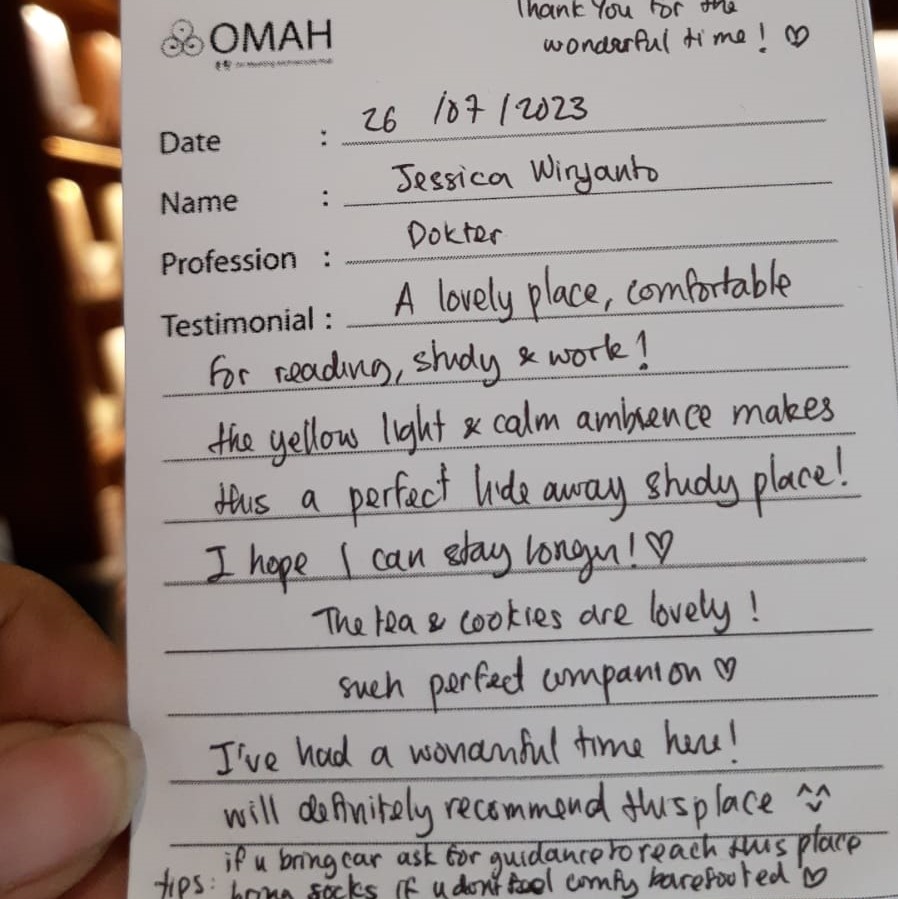 Thank You for the
wonderful time! ♡
OMAH
Date : 26 /07/2023
Name : Jessica Wiryanto
Profession : Dokter
Testimonial : A lovely place, comfortable
for reading, study & work!
the yellow light & calm ambience makes
this a perfect hide away study place!
I hope I can stay longer! ♡
The tea & cookies are lovely!
such perfect companion ♡
I've had a wonderful time here!
will definitely recommend this place ^^
if u bring car ask for guidance to reach this place
tips: bring socks if u dont feel comfy barefooted ♡